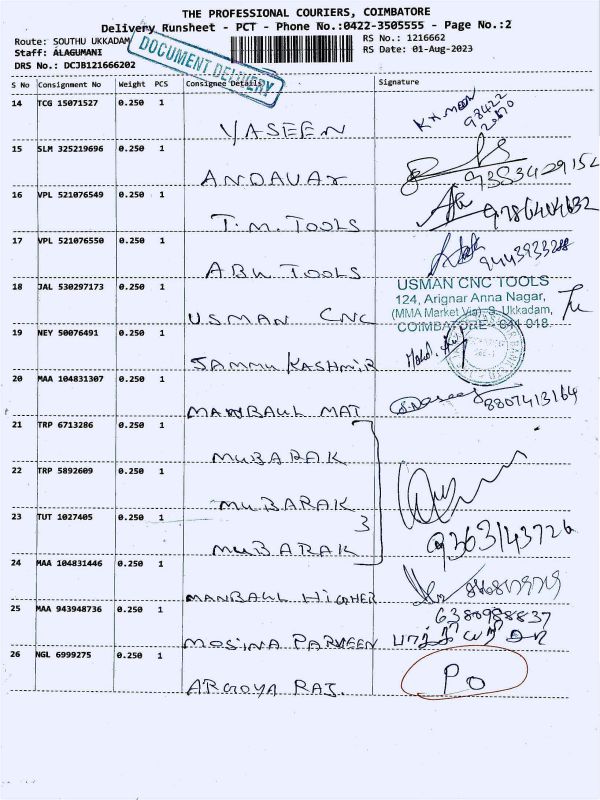 THE PROFESSIONAL COURIERS, COIMBATORE
Delivery Runsheet - PCT - Phone No.:0422-3505555 - Page No.:2
Route: SOUTHU UKKADAM
RS No.: 1216662
Staff: ALAGUMANI
RS Date: 01-Aug-2023
DRS No.: DCJB121666202
DOCUMENT DELIVERY
S No Consignment No Weight PCS Consignee Details Signature
14 TCG 15071527 0.250 1
YASEEN
98422
15 SLM 325219696 0.250 1
ANDAVAR 9383429152
16 VPL 521076549 0.250 1
T.M. TOOLS 9786404632
17 VPL 521076550 0.250 1
ABU TOOLS
18 JAL 530297173 0.250 1
USMAN CNC TOOLS
124, Arignar Anna Nagar,
(MMA Market Via), S. Ukkadam,
COIMBATORE - 641 018.
USMAN CNC
19 NEY 50076491 0.250 1
JAMMU KASHMIR
20 MAA 104831307 0.250 1
MANBAUL MAT 8807413164
21 TRP 6713286 0.250 1
MUBARAK
22 TRP 5892609 0.250 1
MUBARAK
3
23 TUT 1027405 0.250 1
MUBARAK 9363143726
24 MAA 104831446 0.250 1
MANBAUL HIGHER
25 MAA 943948736 0.250 1
6380988837
MOSINA PARVEEN
26 NGL 6999275 0.250 1
PO
AROGYA RAJ.